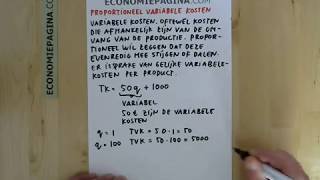 ECONOMIEPAGINA.COM
PROPORTIONEEL VARIABELE KOSTEN
VARIABELE KOSTEN. OFTEWEL KOSTEN
DIE AFHANKELIJK ZIJN VAN DE OM-
VANG VAN DE PRODUCTIE. PROPOR-
TIONEEL WIL ZEGGEN DAT DEZE
EVENREDIG MEE STIJGEN OF DALEN.
ER IS SPRAKE VAN GELIJKE VARIABELE-
KOSTEN PER PRODUCT.
TK = 50q + 1000
VARIABEL
50 ZIJN DE VARIABELE
KOSTEN
q = 1 TVK = 50 · 1 = 50
q = 100 TVK = 50 · 100 = 5000